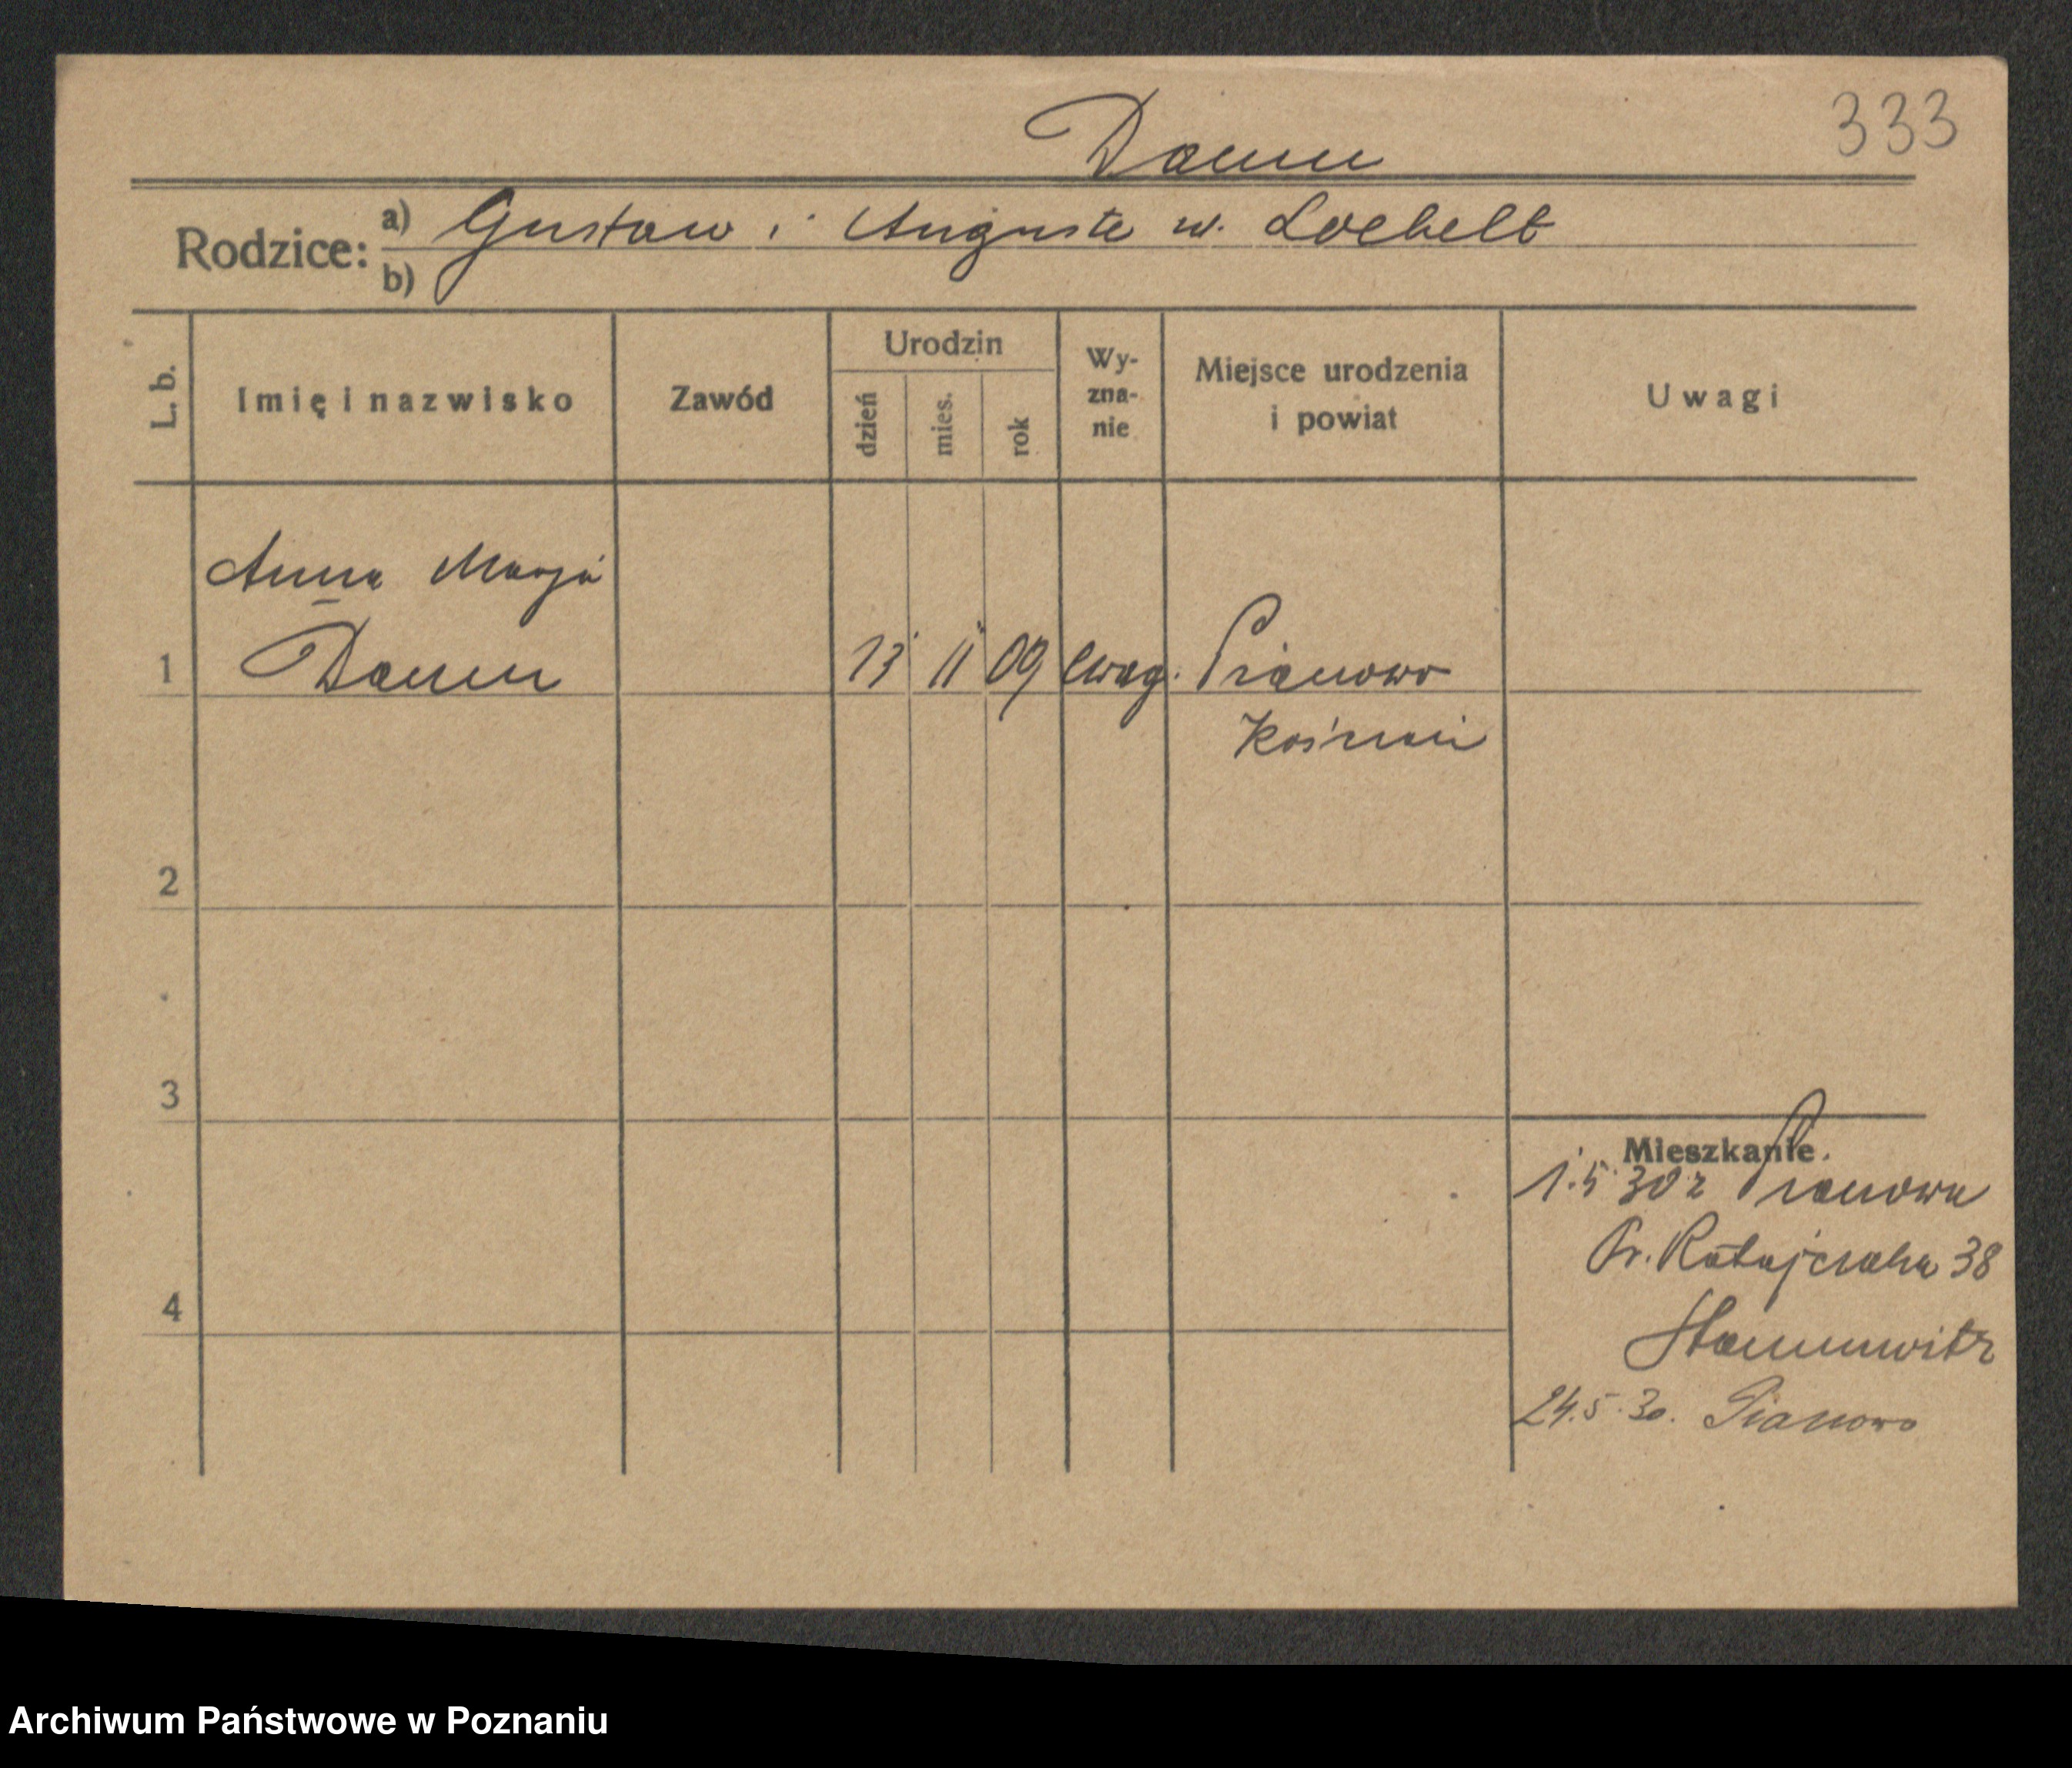 333
Damm
Rodzice: a) Gustaw i Auguste w. Loebelt
b)
L. b.
Imię i nazwisko
Zawód
Urodzin
dzień
mies.
rok
Wy-
zna-
nie
Miejsce urodzenia
i powiat
Uwagi
Anna Marja
1 Damm 13 11 09 ewag. Pianowo
Kościan
2
3
Mieszkanie.
1.5 30 z Pianowa
Pr. Ratajczaka 38
4
24.5.30. Pianowo
Archiwum Państwowe w Poznaniu